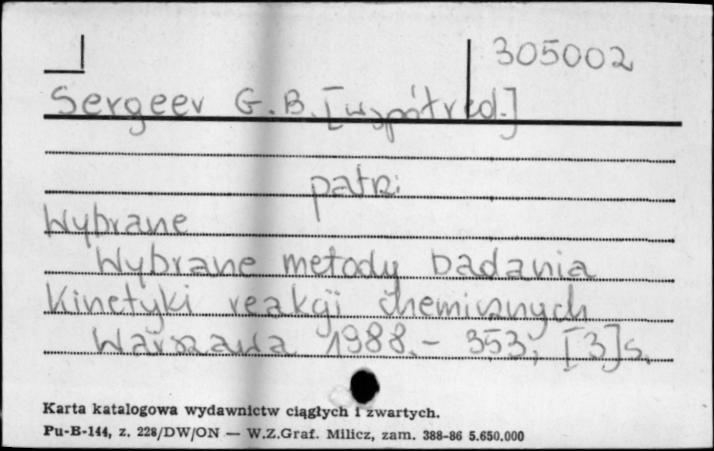 305002
Sergeev G.B. [współred.]
patrz:
Wybrane
Wybrane metody badania
kinetyki reakcji chemicznych
Warszawa 1988.- 353, [3]s.
Karta katalogowa wydawnictw ciągłych i zwartych.
Pu-B-144, z. 228/DW/ON — W.Z.Graf. Milicz, zam. 388-86 5.650.000